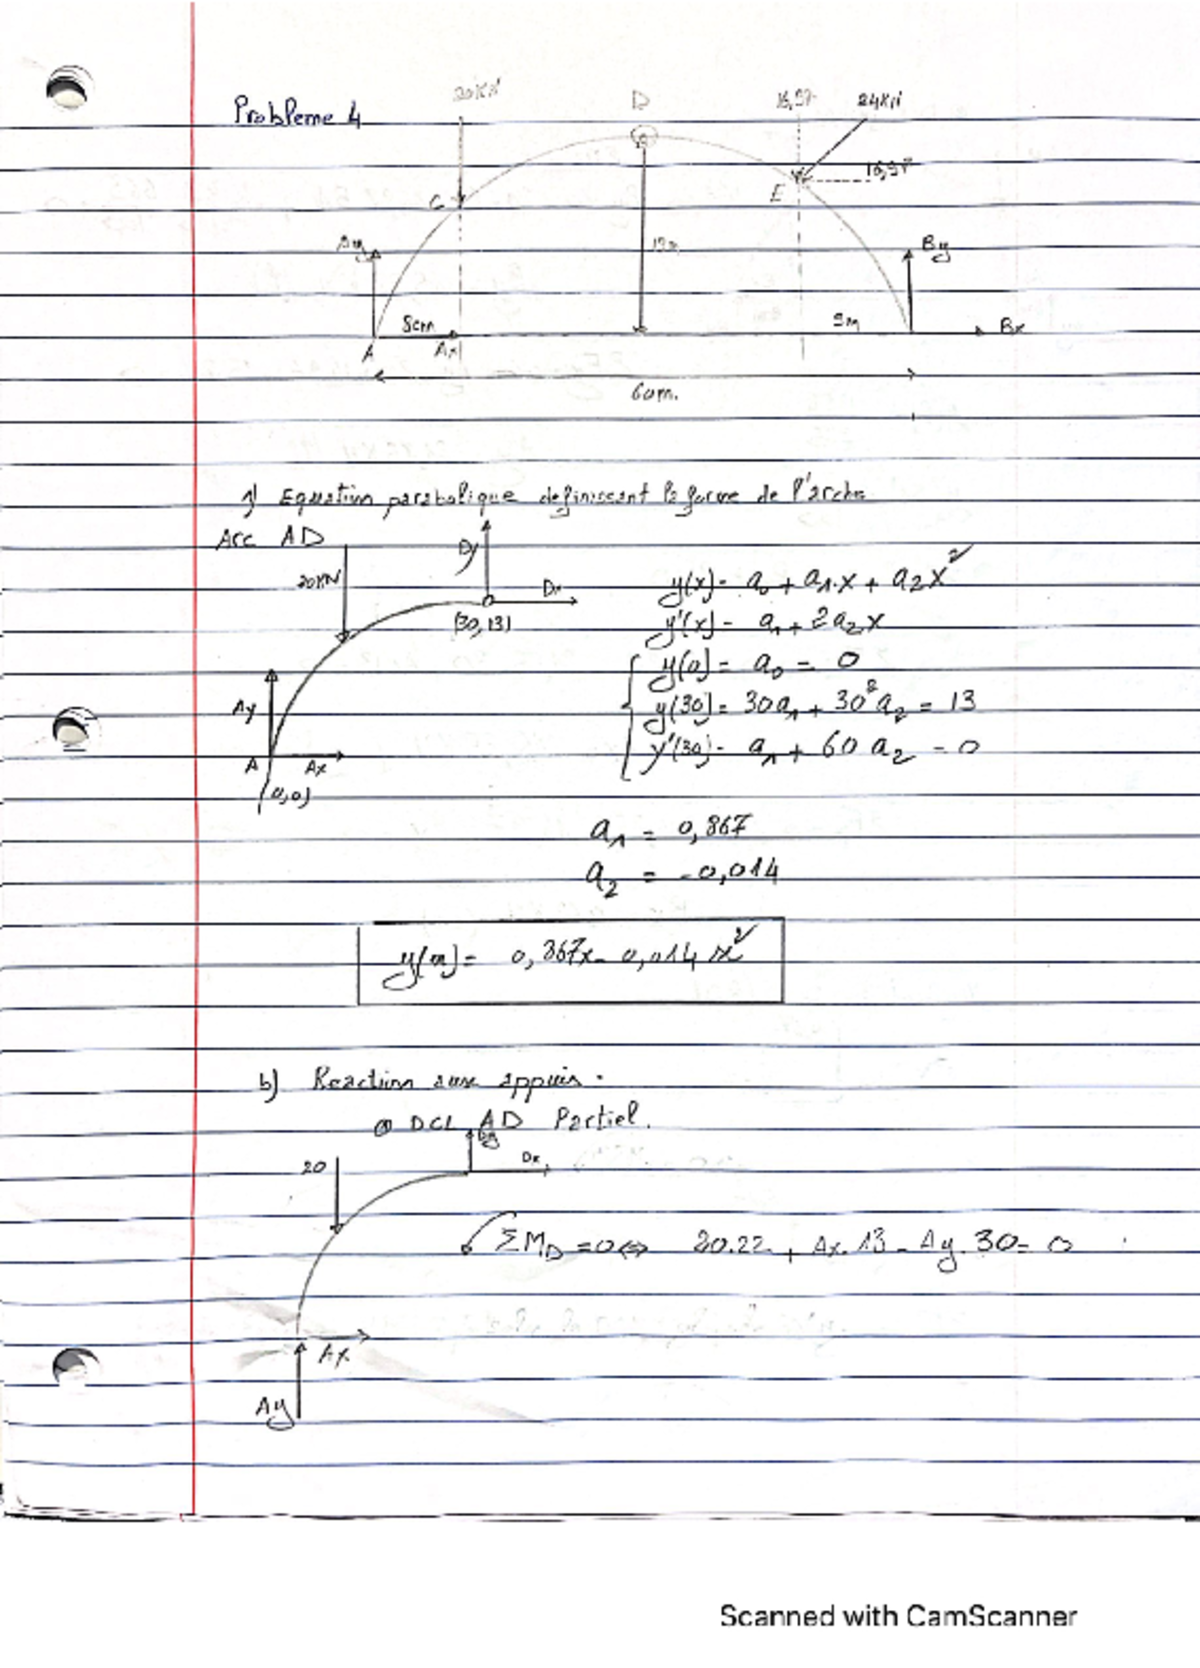 Probleme 4
20KN
D
16,97
24KN
16,97
C
E
Ay
13m
By
8cm
9m
Bx
A
Ax
60m.
a) Equation parabolique definissant la forme de l'arche
Arc AD
20KN
Dy
Dx
(30,13)
Ay
A
Ax
(0,0)
y(x) = a0 + a1.x + a2x²
y'(x) = a1 + 2a2x
y(0) = a0 = 0
y(30) = 30a1 + 30²a2 = 13
y'(30) = a1 + 60 a2 = 0
a1 = 0,867
a2 = -0,014
y(x) = 0,867x - 0,014x²
b) Reaction aux appuis.
@ DCL AD Partiel.
Dy
Dx
20
ΣMD = 0 ⇔ 20.22 + Ax.13 - Ay.30 = 0
Ax
Ay
Scanned with CamScanner